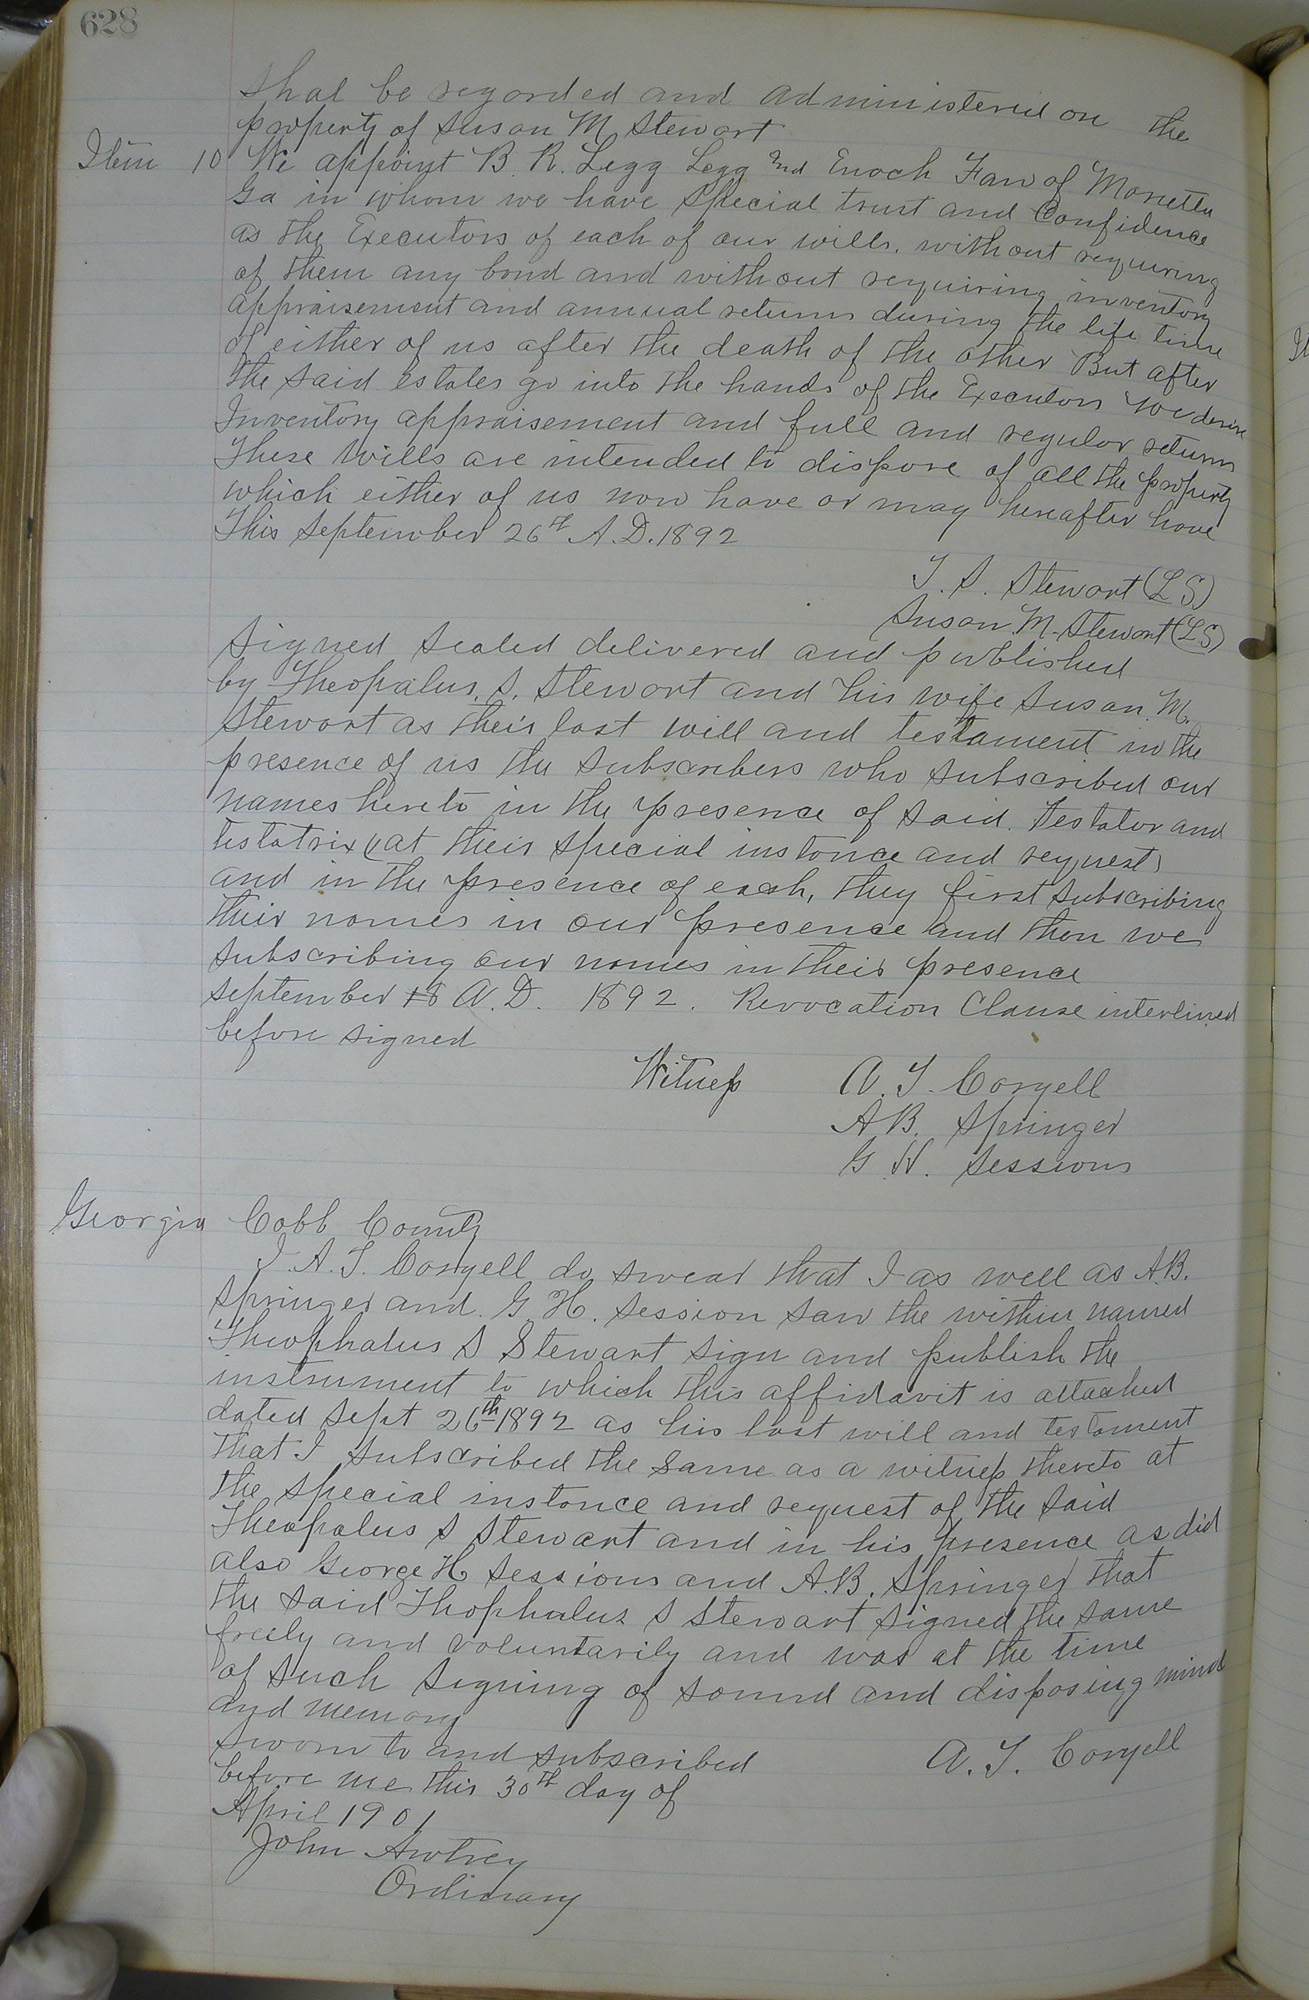 628
shal be regarded and administered on the
property of Susan M. Stewart
Item 10 We appoint B. R. Legg Legg and Enoch Faw of Marietta
Ga in whom we have special trust and Confidence
as the Executors of each of our wills, without requiring
of them any bond and without requiring inventory
appraisement and annual returns during the life time
of either of us after the death of the other But after
the said estates go into the hands of the Executors we desire
Inventory appraisement and full and regular returns
These Wills are intended to dispose of all the property
which either of us now have or may hereafter have
This September 26th A.D. 1892
T. S. Stewart (LS)
Susan M. Stewart (LS)
Signed sealed delivered and published
by Theopalus. S. Stewart and his wife Susan. M.
Stewart as their last will and testament in the
presence of us the subscribers who subscribed our
names hereto in the presence of said. testator and
testatrix (at their special instance and request)
and in the presence of each, they first subscribing
their names in our presence and then we
subscribing our names in their presence
September 18 A.D. 1892. Revocation Clause interlined
before signed
Witness A. T. Coryell
A B. Springer
G. H. Sessions
Georgia Cobb County
I. A. T. Coryell do swear that I as well as A.B.
Springer and. G. H. Session saw the within named
Theophalus S Stewart sign and publish the
instrument to which this affidavit is attached
dated Sept 26th 1892 as his last will and testament
that I subscribed the same as a witness thereto at
the special instance and request of the said
Theopalus S Stewart and in his presence as did
also George H Sessions and A.B. Springer that
the said Thophalus S Stewart signed the same
freely and voluntarily and was at the time
of such signing of sound and disposing mind
and memory
Sworn to and subscribed A. T. Coryell
before me this 30th day of
April 1901
John Awtrey
Ordinary